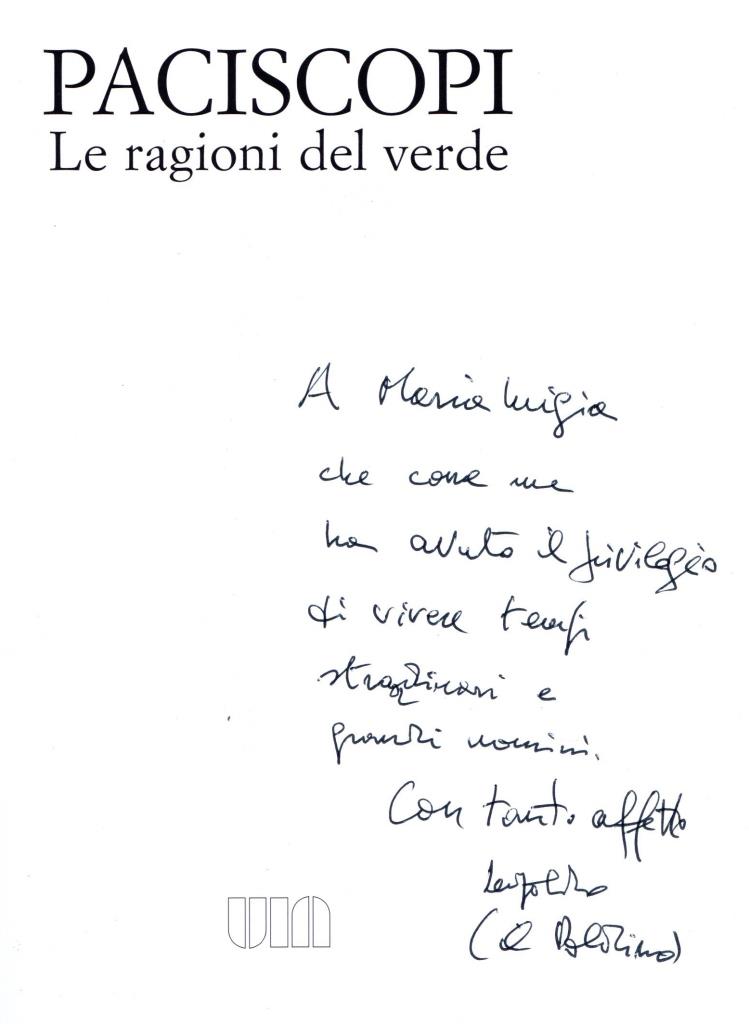 PACISCOPI
Le ragioni del verde
A Maria Luigia
che come me
ha avuto il privilegio
di vivere tempi
straordinari e
grandi uomini.
Con tanto affetto
Leopoldo
(il Poldino)